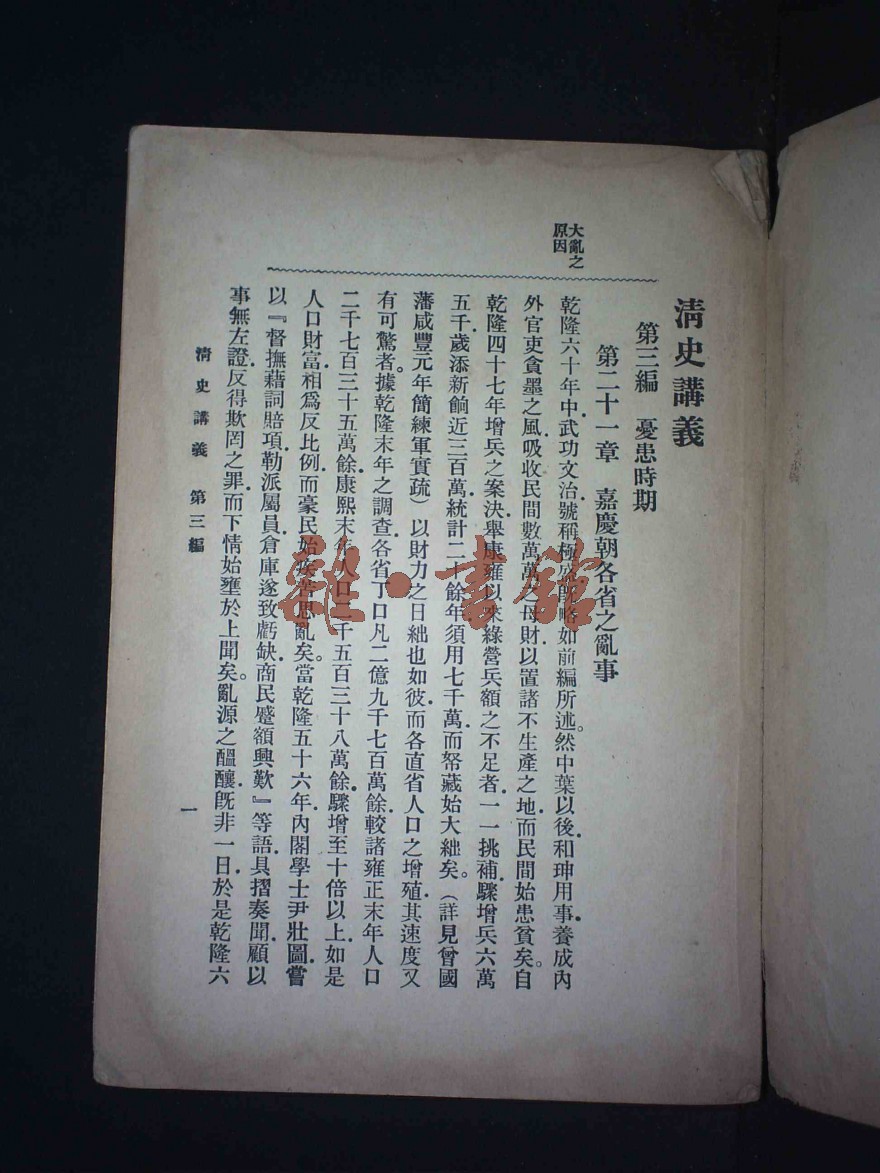 清史講義
第三編 憂患時期
第二十一章 嘉慶朝各省之亂事
大亂之
原因
乾隆六十年中武功文治號稱極盛前略如前編所述。然中葉以後和珅用事養成內
外官吏貪墨之風吸收民間數萬萬之母財以置諸不生產之地而民間始患貧矣。自
乾隆四十七年增兵之案決舉康雍以來綠營兵額之不足者一一挑補驟增兵六萬
五千歲添新餉近三百萬統計二十餘年須用七千萬而帑藏始大絀矣。(詳見曾國
藩咸豐元年簡練軍實疏)以財力之日絀也如彼而各直省人口之增殖其速度又
有可驚者。據乾隆末年之調查各省丁口凡二億九千七百萬餘較諸雍正末年人口
二千七百三十五萬餘康熙末年人口二千五百三十八萬餘驟增至十倍以上如是
人口財富相爲反比例而豪民始疾苦思亂矣。當乾隆五十六年內閣學士尹壯圖嘗
以『督撫藉詞賠項勒派屬員倉庫遂致虧缺商民蹙額興歎』等語具摺奏聞顧以
事無左證反得欺罔之罪而下情始壅於上聞矣。亂源之醞釀旣非一日於是乾隆六
清史講義 第三編
一
雜·書館